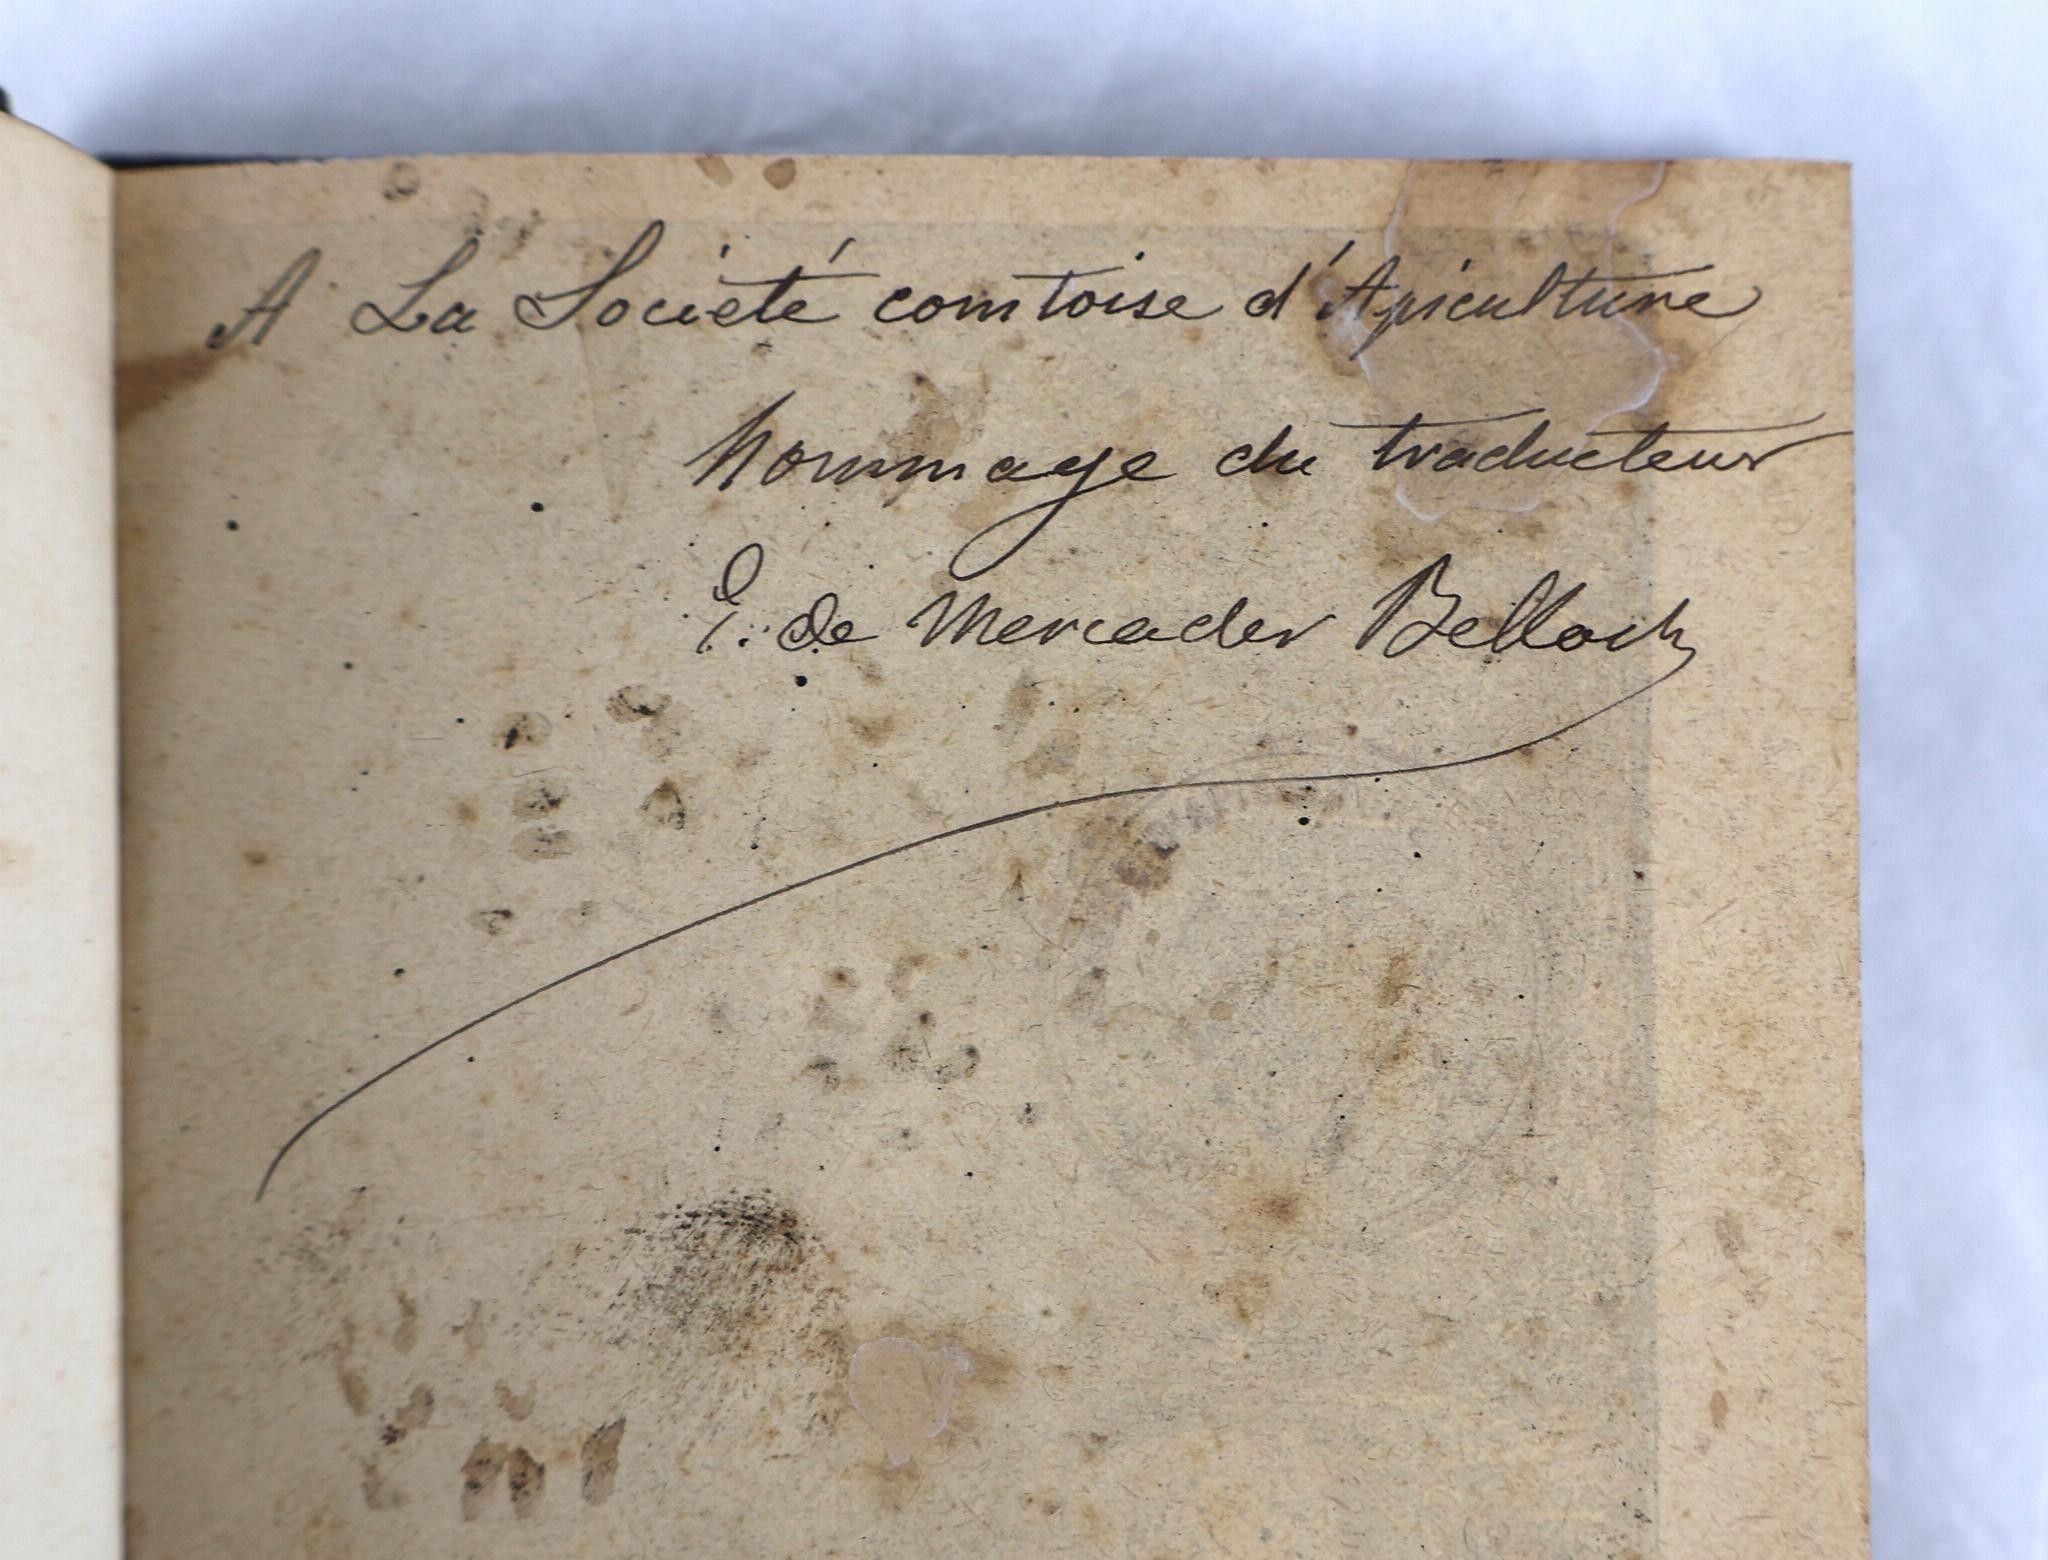 A La Société comtoise d'Apiculture
hommage du traducteur
E. de Mercader Belloch